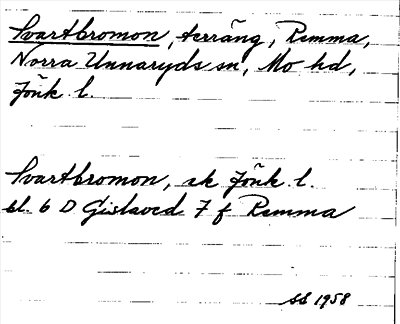 Svartbromon, terräng, Remma,
Norra Unnaryds sn, Mo hd,
Jönk l.
Svartbromon, ek Jönk l.
bl. 6 D Gislaved 7 f Remma
SB 1958